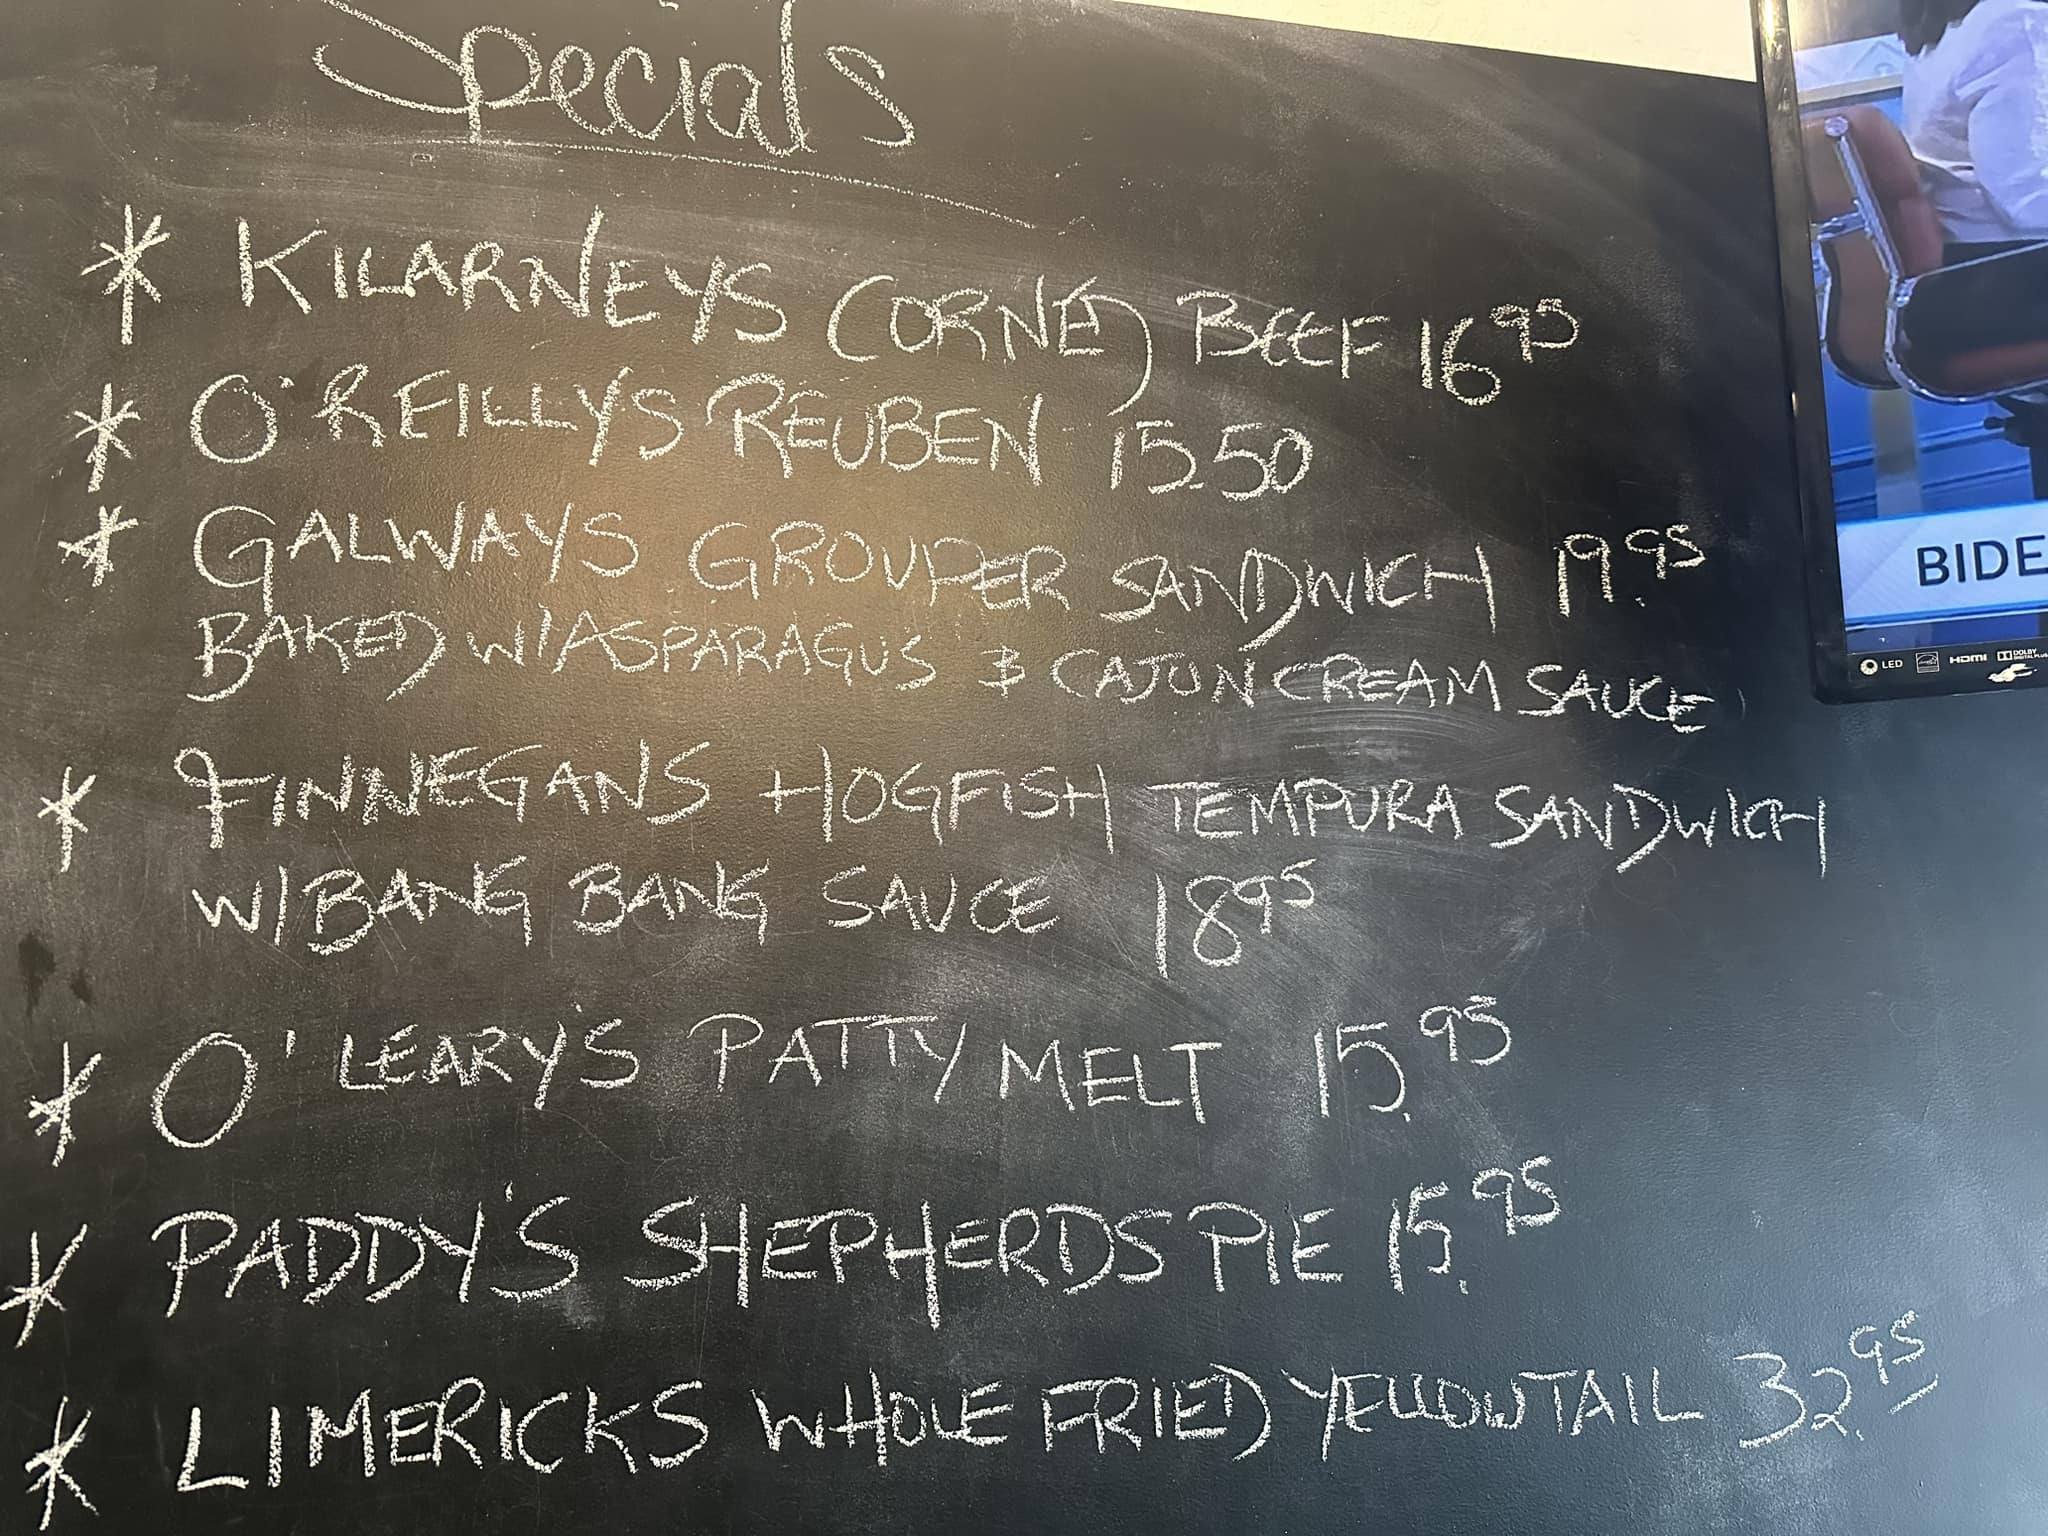 Specials
* KILARNEYS CORNED BEEF 16 95
* O'REILLYS REUBEN 15.50
* GALWAYS GROUPER SANDWICH 19.95
BAKED W/ASPARAGUS & CAJUN CREAM SAUCE
* FINNEGANS HOGFISH TEMPURA SANDWICH
W/BANG BANG SAUCE 18 95
* O'LEARY'S PATTY MELT 15.95
* PADDY'S SHEPHERDS PIE 15.95
* LIMERICKS WHOLE FRIED YELLOWTAIL 32.95
BIDE
LED HDMI DOLBY DIGITAL PLUS